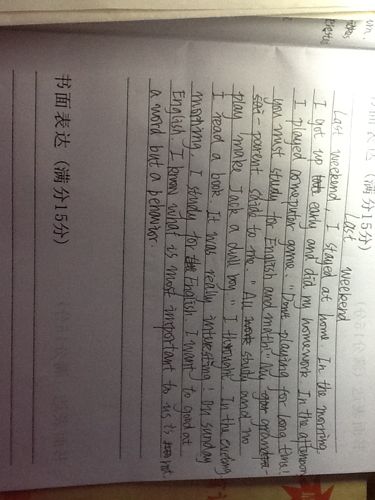 书面表达（满分15分）
Last weekend
Last weekend, I stayed at home. In the morning,
I got up early and did my homework. In the afternoon
I played computer game. "Don't playing for long time!
you must study for English and math!" My grand
parent said to me. "All work study and no
play make Jack a dull boy." I thought. In the evening
I read a book. It was really interesting! On sunday
morning, I study for English. I want to good at
English. I know what is most important to us is not
a word but a behavior.
书面表达（满分15分）